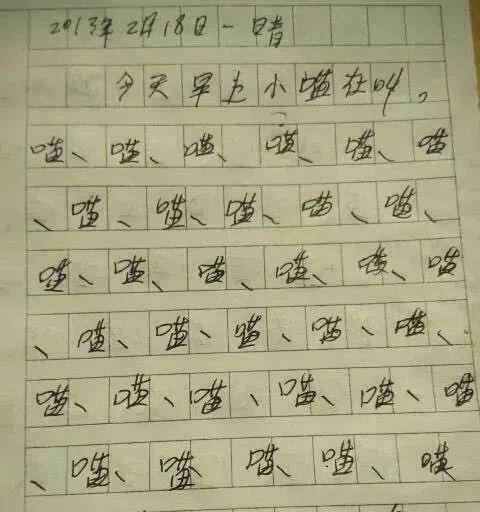 2013年2月18日一晴
今天早上小喵在叫。
喵、喵、喵、喵、喵、喵
、喵、喵、喵、喵、喵、
喵、喵、喵、喵、喵、喵
、喵、喵、喵、喵、喵、
喵、喵、喵、喵、喵、喵
、喵、喵、喵、喵、喵